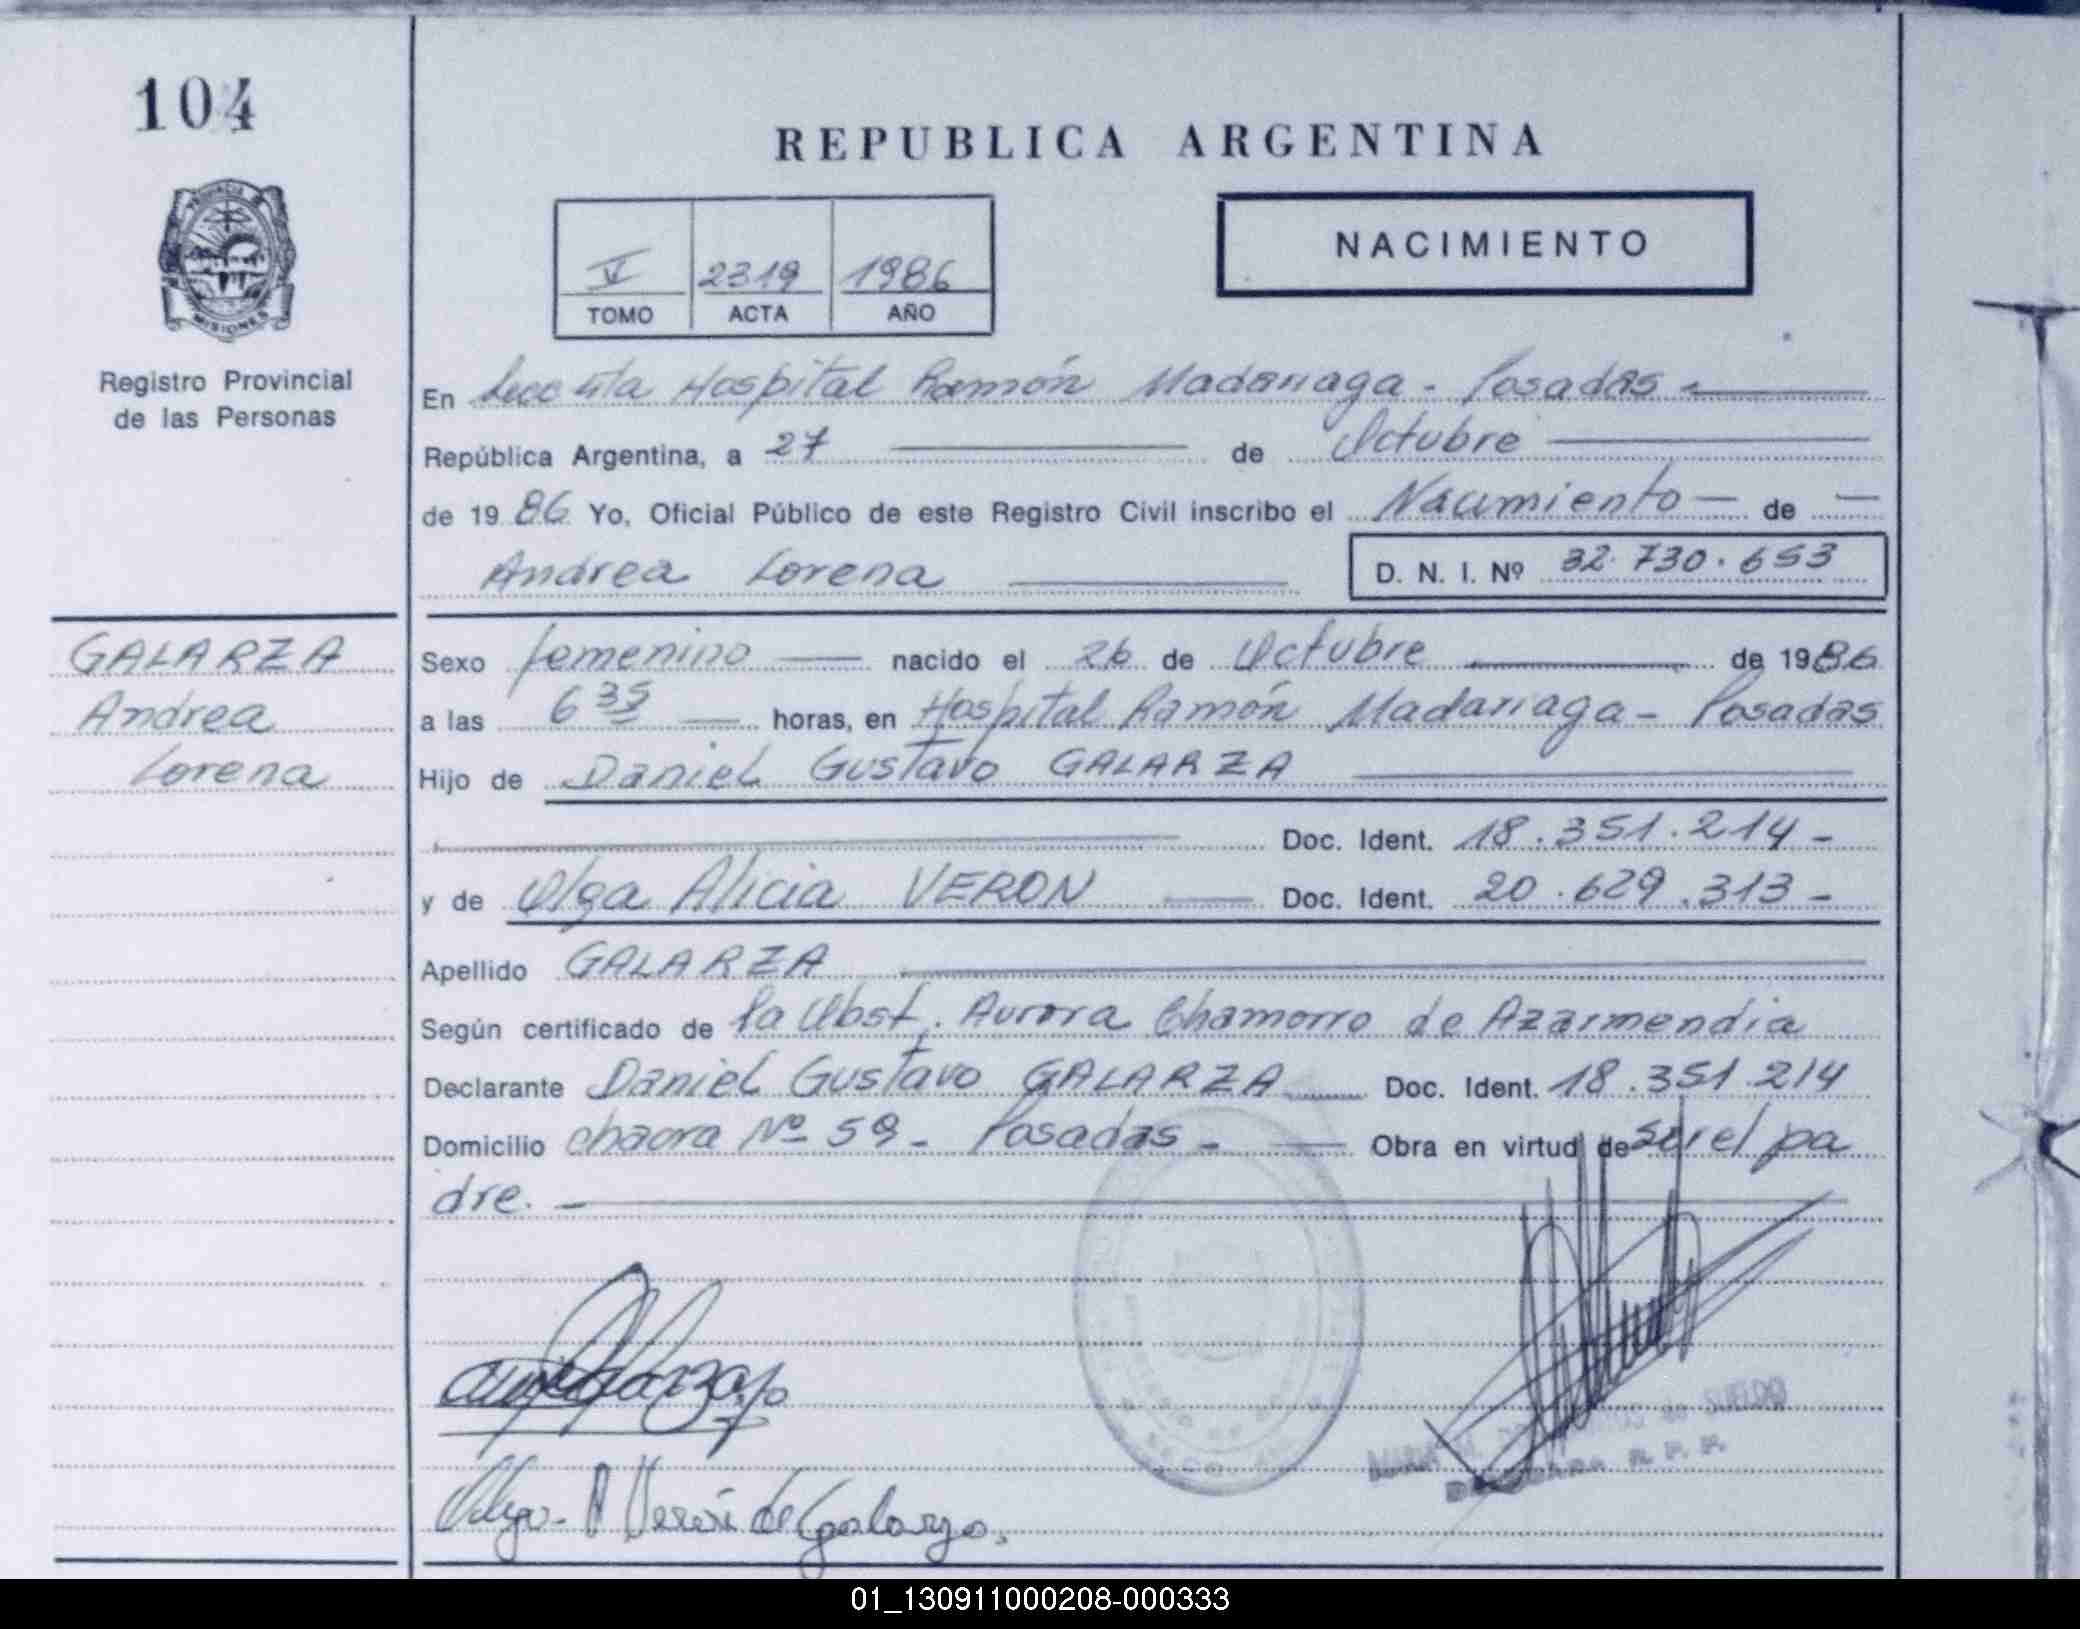 104
REPUBLICA ARGENTINA
PROVINCIA DE
MISIONES
Registro Provincial
de las Personas
V 2319 1986
TOMO ACTA AÑO
NACIMIENTO
En Secc 4ta Hospital Ramón Madariaga - Posadas -
República Argentina, a 27 de Octubre
de 1986 Yo, Oficial Público de este Registro Civil inscribo el Nacimiento — de —
Andrea Lorena D. N. I. Nº 32.730.653
GALARZA
Andrea
Lorena
Sexo femenino — nacido el 26 de Octubre de 1986
a las 6 35 — horas, en Hospital Ramón Madariaga - Posadas
Hijo de Daniel Gustavo GALARZA
Doc. Ident. 18.351.214 -
y de Olga Alicia VERON — Doc. Ident. 20.629.313 -
Apellido GALARZA
Según certificado de la Obst. Aurora Chamorro de Azarmendia
Declarante Daniel Gustavo GALARZA Doc. Ident. 18.351.214
Domicilio chacra Nº 59 - Posadas - Obra en virtud de ser el pa
dre. -
Olga A Verón de Galarza.
SUELDO
R. P. P.
01_130911000208-000333